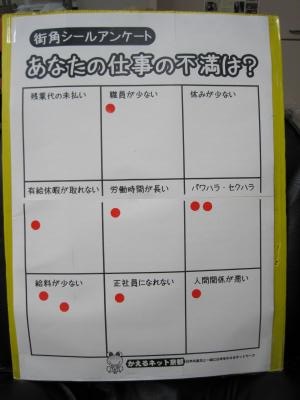 街角シールアンケート
あなたの仕事の不満は?
残業代の未払い
職員が少ない
休みが少ない
有給休暇が取れない
労働時間が長い
パワハラ・セクハラ
給料が少ない
正社員になれない
人間関係が悪い
かえるネット京都